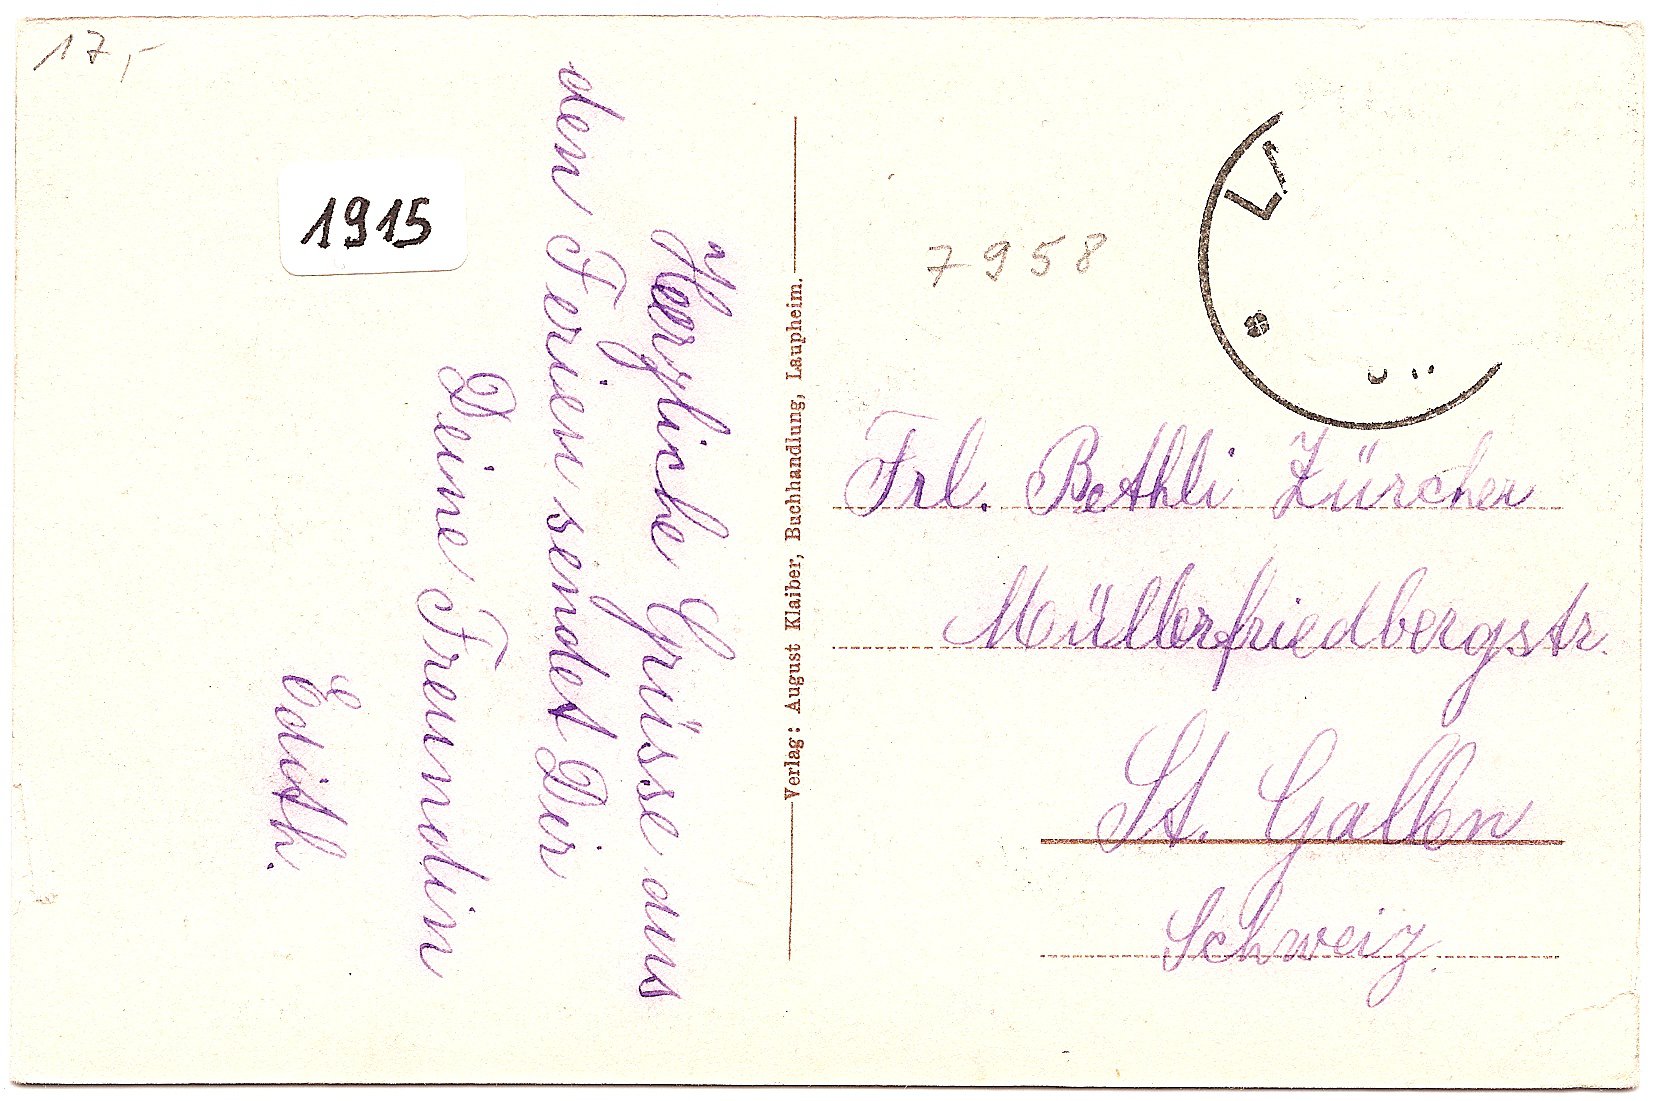 17,-
1915
Herzliche Grüsse aus
den Ferien sendet Dir
Deine Freundin
Edith.
Verlag: August Klaiber, Buchhandlung, Laupheim.
7958
Frl. Bethli Zürcher
Müllerfriedbergstr.
St. Gallen
Schweiz.